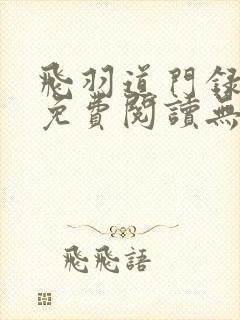 飛羽道門錄
免費閱讀無
飛飛語